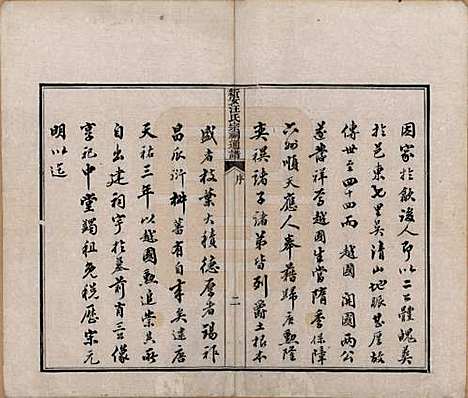 因家於歙後人即以二公體魄奠
於邑東七里吴清山地脈甚厚故
傳世至四十四而 越國 開國兩公
遂發祥焉越國生當隋季保障
六州順天應人奉籍歸唐勲隆
奕禩諸子諸弟皆列爵土根本
新安汪氏宗祠通譜 序 二
盛者枝葉大積德厚者錫祚
昌瓜衍椒蕃有自來矣逮唐
天祐三年以越國勲追崇其所
自出建祠宇於墓前肖三公像
享祀中堂蠲租免稅歷宋元
明以迄